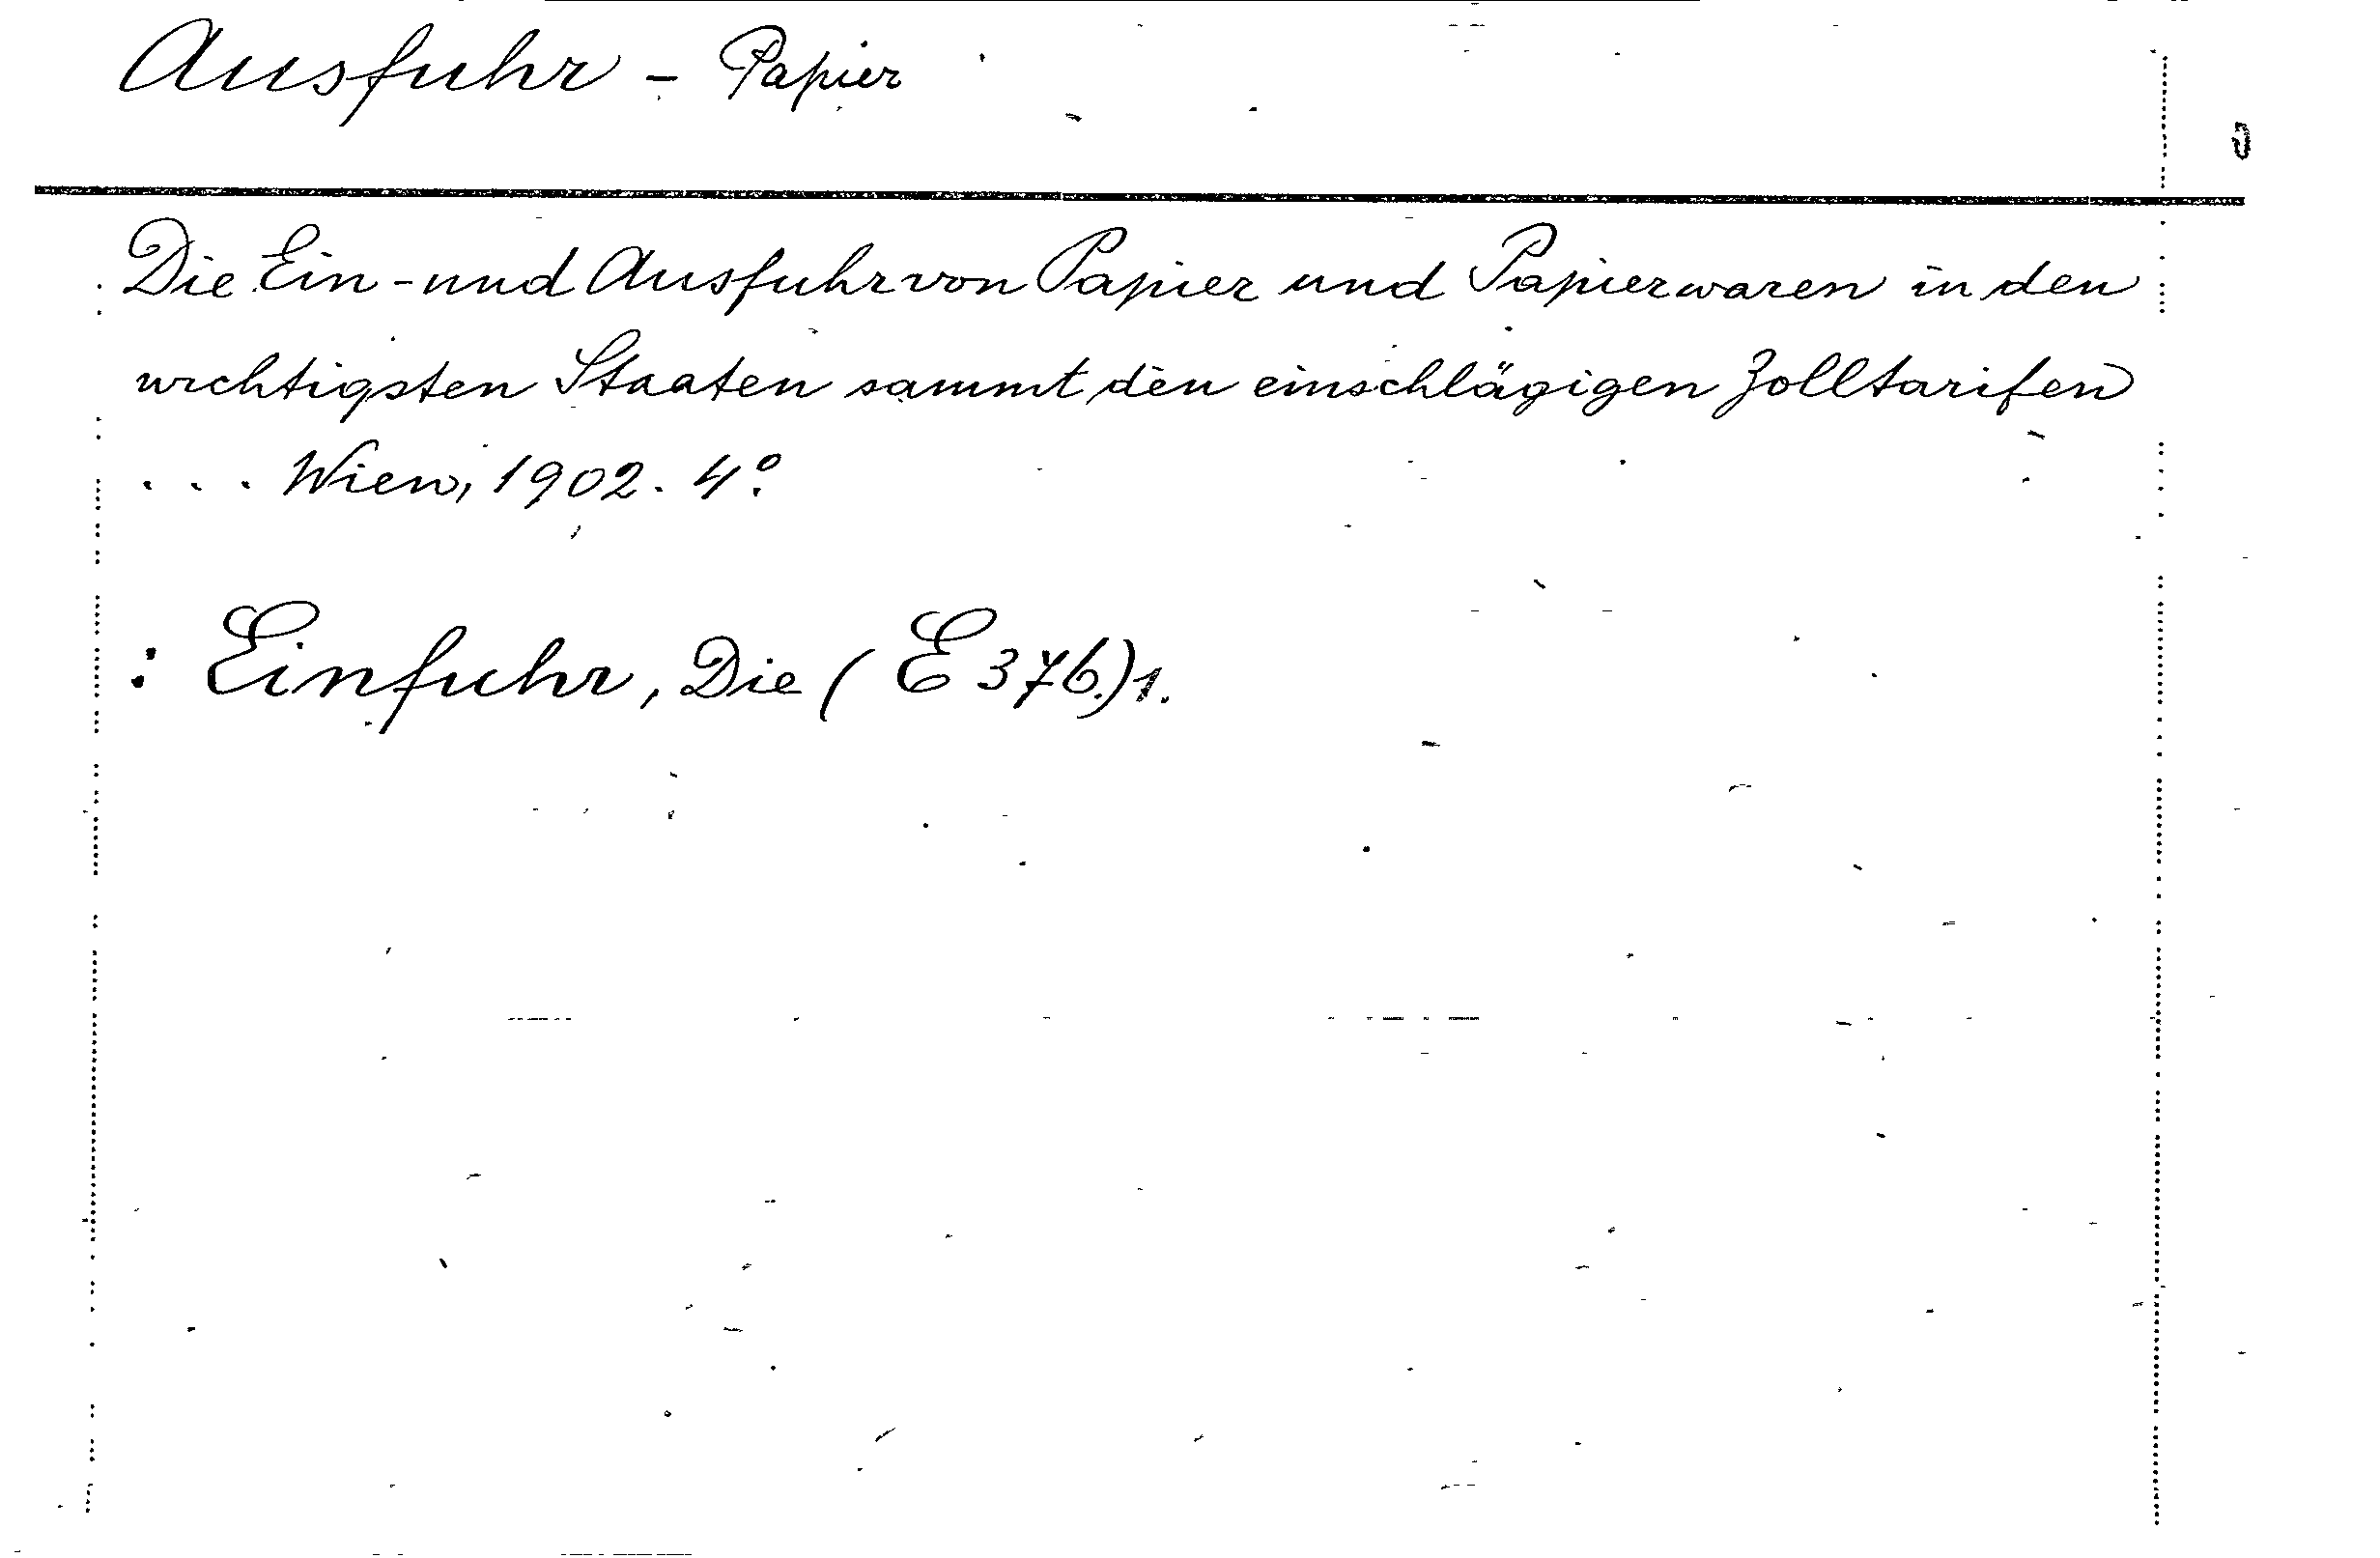 Ausfuhr - Papier
Die Ein - und Ausfuhr von Papier und Papierwaren in den
wichtigsten Staaten sammt den einschlägigen Zolltarifen
... Wien, 1902. 4°.
: Einfuhr, Die (E 376.) 1.